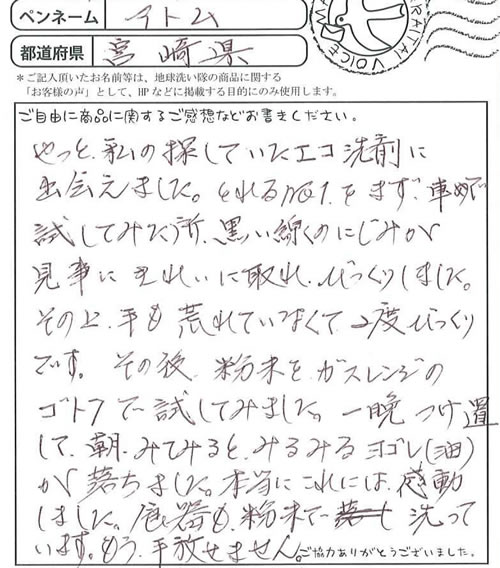 ペンネーム アトム
都道府県 宮崎県
＊ご記入頂いたお名前等は、地球洗い隊の商品に関する
「お客様の声」として、HPなどに掲載する目的にのみ使用します。
ご自由に商品に関するご感想などお書きください。
やっと、私の探していたエコ洗剤に
出会えました。とれるNO1.をまず、車内で
試してみた所、黒い線くのにじみが
見事にきれいに取れ、びっくりしました。
その上、手も荒れていなくて、2度びっくり
です。その後、粉末をガスレンジの
ゴトクで試してみました。一晩つけ置
して、朝、みてみると、みるみるヨゴレ(油)
が落ちました。本当にこれには、感動
しました。食器も、粉末で洗って
います。もう、手放せません。
ご協力ありがとうございました。